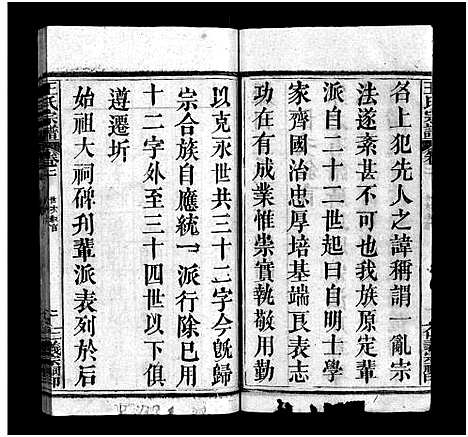 王氏宗譜
名上犯先人之諱稱謂一亂宗
法遂紊甚不可大我族原定輩
派自二十二世起曰自明士學
家齊國治忠厚培基端良表志
功在有成業惟崇實執敬用勤
以克永世共三十二字今旣歸
宗合族自應統一派行除已用
十二字外至三十四世以下俱
遵遷圻
始祖大祠碑刋輩派表列於右
王氏宗譜